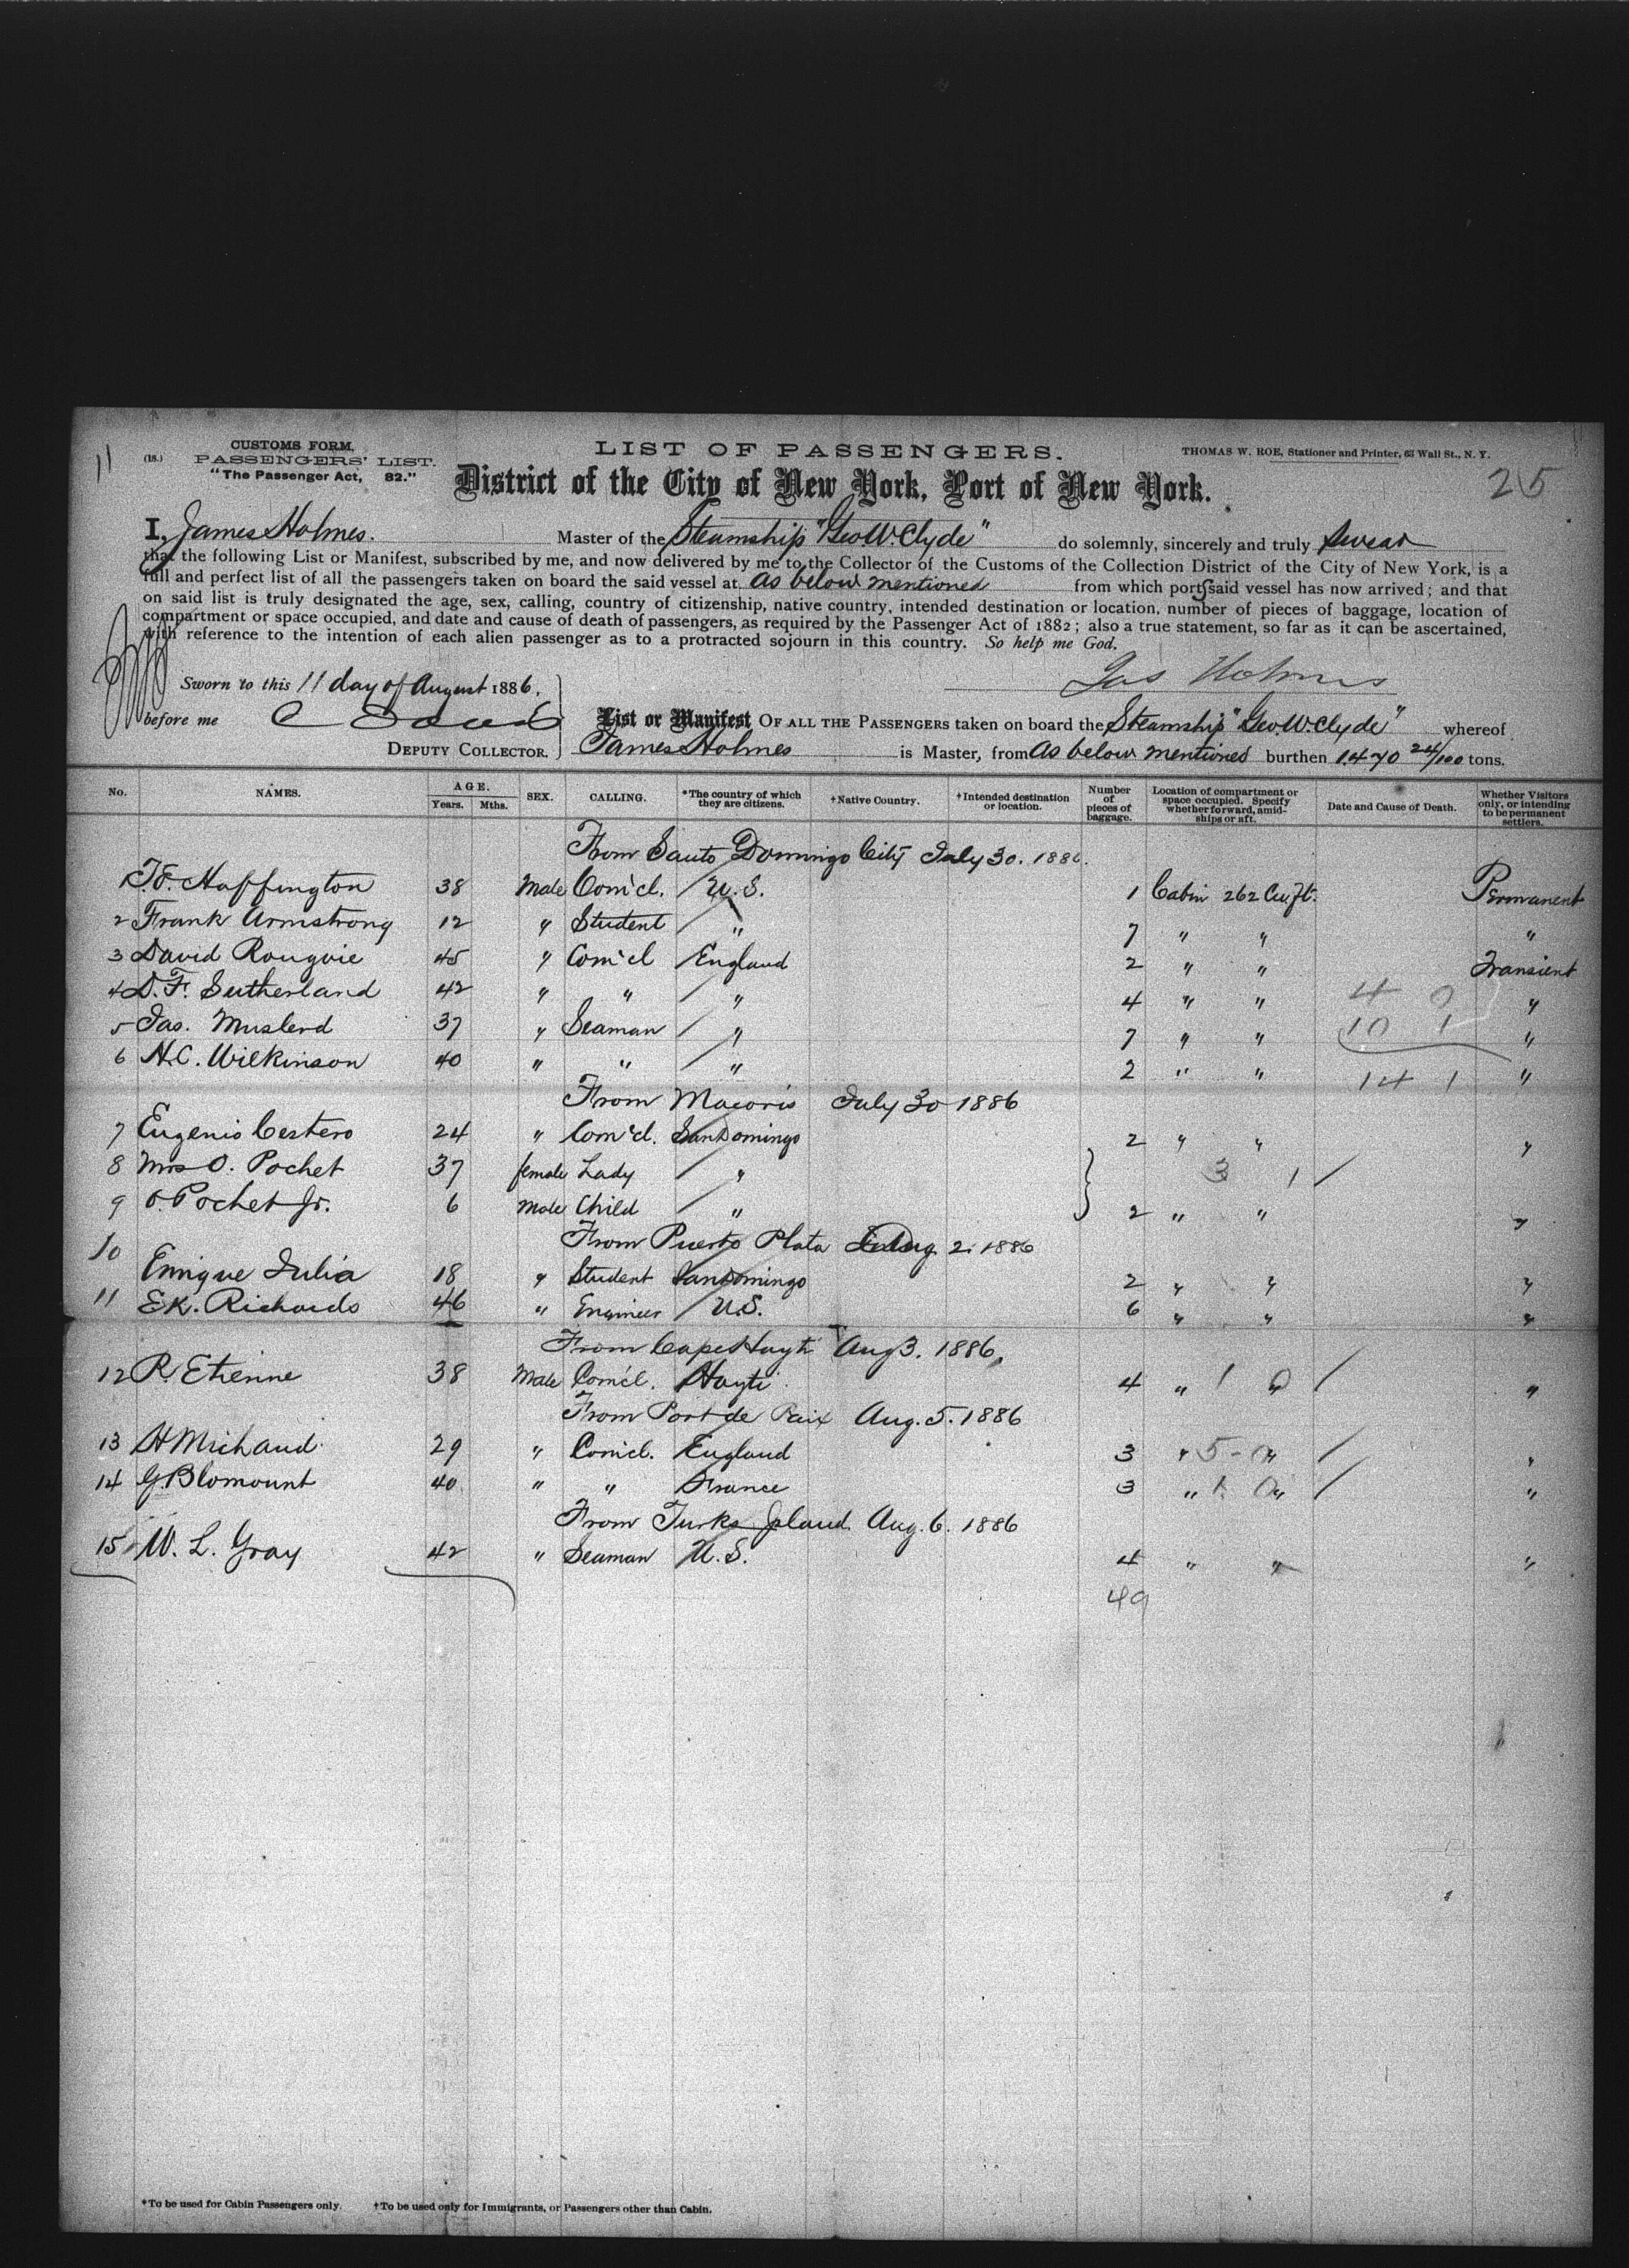 11
CUSTOMS FORM,
(18.) PASSENGERS' LIST.
"The Passenger Act, 82."
LIST OF PASSENGERS.
THOMAS W. ROE, Stationer and Printer, 63 Wall St., N. Y.
District of the City of New York, Port of New York.
25
I, James Holmes. Master of the Steamship "Geo. W. Clyde" do solemnly, sincerely and truly swear
that the following List or Manifest, subscribed by me, and now delivered by me to the Collector of the Customs of the Collection District of the City of New York, is a
full and perfect list of all the passengers taken on board the said vessel at as below mentioned from which ports said vessel has now arrived; and that
on said list is truly designated the age, sex, calling, country of citizenship, native country, intended destination or location, number of pieces of baggage, location of
compartment or space occupied, and date and cause of death of passengers, as required by the Passenger Act of 1882; also a true statement, so far as it can be ascertained,
with reference to the intention of each alien passenger as to a protracted sojourn in this country. So help me God.
Jas Holmes
Sworn to this 11 day of August 1886.
before me
DEPUTY COLLECTOR.
List or Manifest OF ALL THE PASSENGERS taken on board the Steamship "Geo. W. Clyde" whereof
James Holmes is Master, from as below mentioned burthen 1470 24/100 tons.
No. NAMES. AGE. Years. Mths. SEX. CALLING. *The country of which they are citizens. †Native Country. †Intended destination or location. Number of pieces of baggage. Location of compartment or space occupied. Specify whether forward, amidships or aft. Date and Cause of Death. Whether Visitors only, or intending to be permanent settlers.
From Santo Domingo City July 30. 1886.
1 Huffington 38 Male Com'cl. U.S. 1 Cabin 262 Cu Ft. Permanent
2 Frank Armstrong 12 " Student " 7 " " "
3 David Rougvie 45 " Com'cl England 2 " " Transient
4 D. F. Sutherland 42 " " " 4 " " 4 0 "
5 Jas. 37 " Seaman " 7 " " 10 1 "
6 H.C. Wilkinson 40 " " " 2 " " 14 1 "
From Macoris July 30 1886
7 Eugenio Cestero 24 " Com'cl. San Domingo 2 " " "
8 Mrs O. Pochet 37 female Lady " 3 1
9 O. Pochet Jr. 6 Male Child " 2 " " "
From Puerto Plata Aug. 2. 1886
10 Enrique Julia 18 " Student San Domingo 2 " " "
11 E.K. Richards 46 " Engineer U.S. 6 " " "
From Cape Hayti Aug 3. 1886.
12 R. Etienne 38 Male Com'cl. Hayti 4 " 1 0 " "
From Port de Paix Aug. 5. 1886
13 H Michaud 29 " Com'cl. England 3 " 5 - 0 " "
14 G. Blomount 40 " " France 3 " 1 0 " "
From Turks Island Aug. 6. 1886
15 W. L. Gray 42 " Seaman U.S. 4 " " "
49
*To be used for Cabin Passengers only. †To be used only for Immigrants, or Passengers other than Cabin.